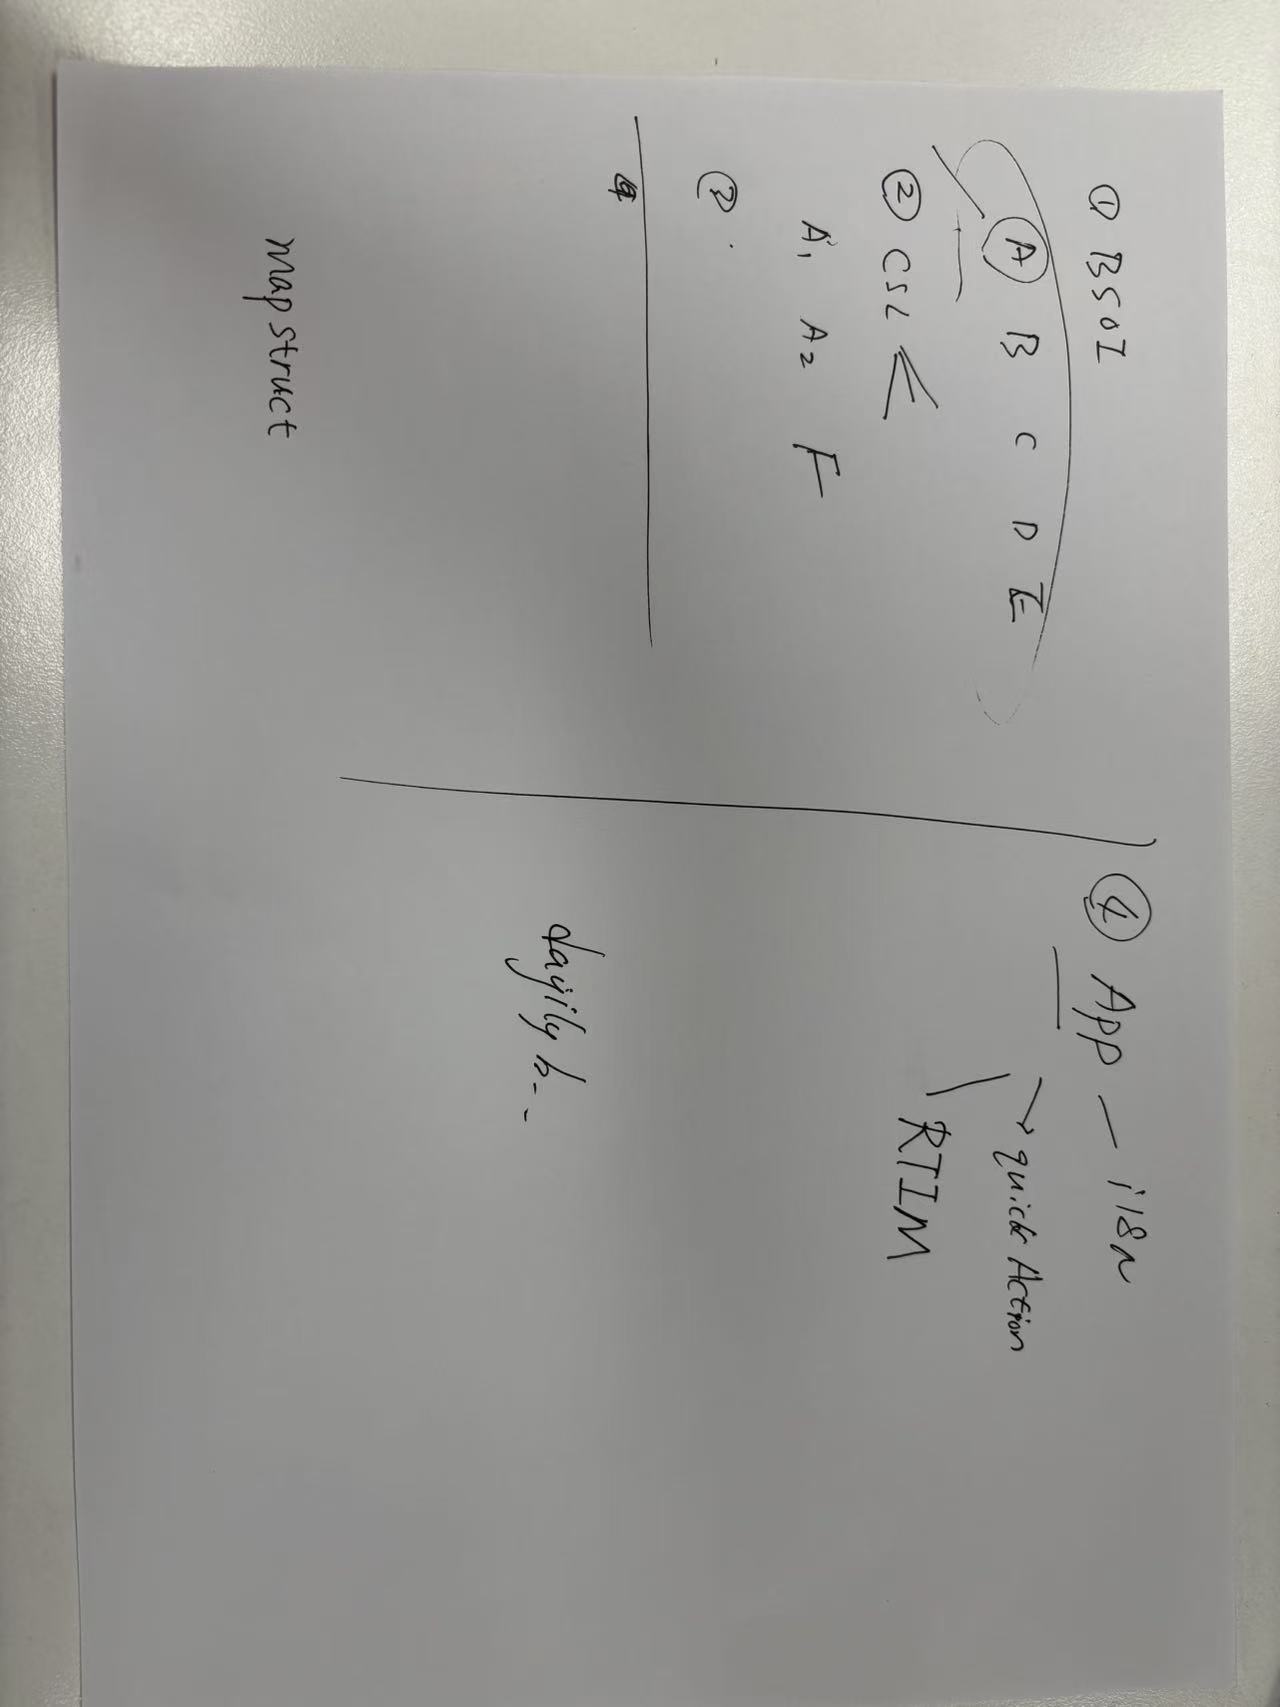 ① BSOI
Ⓐ B C D E
② CSL <
A₁ A₂ F
③
mapstruct
④ App — i18n
→ quick Action
RTIM
dayily b--